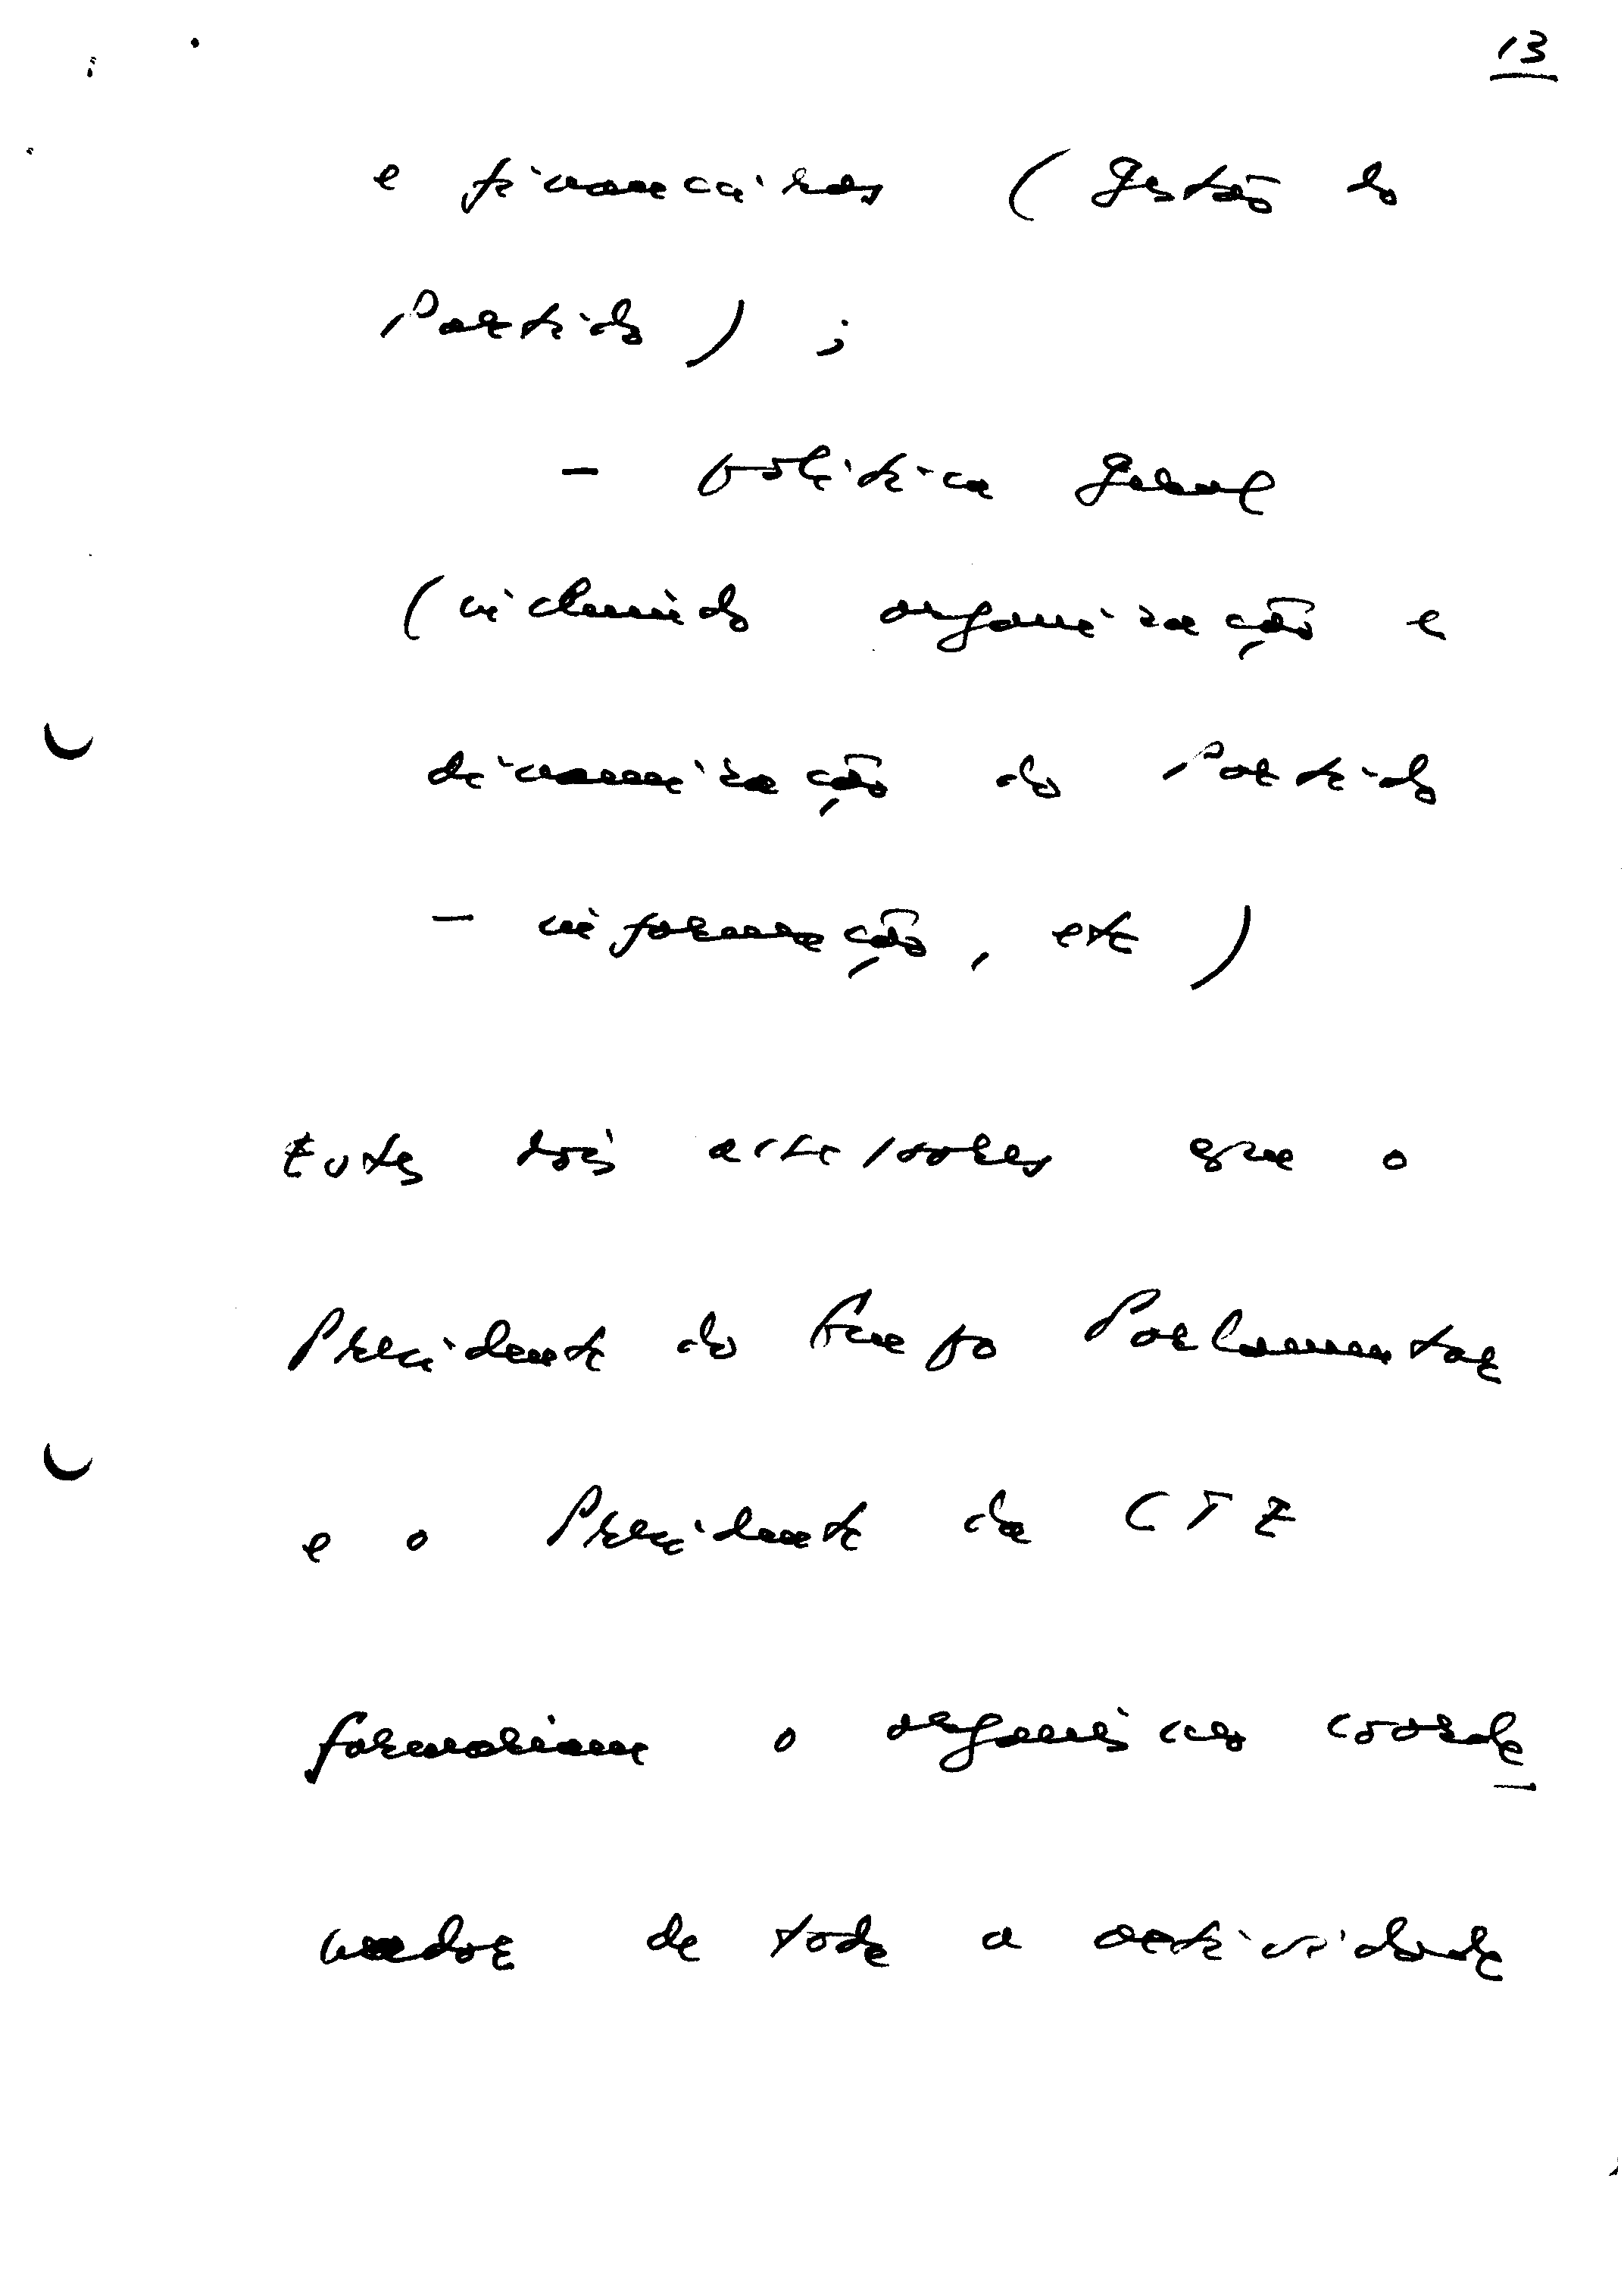 13
e financeiros (gestão do
Partido) ;
- política geral
(incluindo organização e
dinamização do Partido
- informação, etc)
Estes dois assessores que o
Presidente do Grupo Parlamentar
e o Presidente da CTE
formariam o organismo coorde
nador de toda a actividade